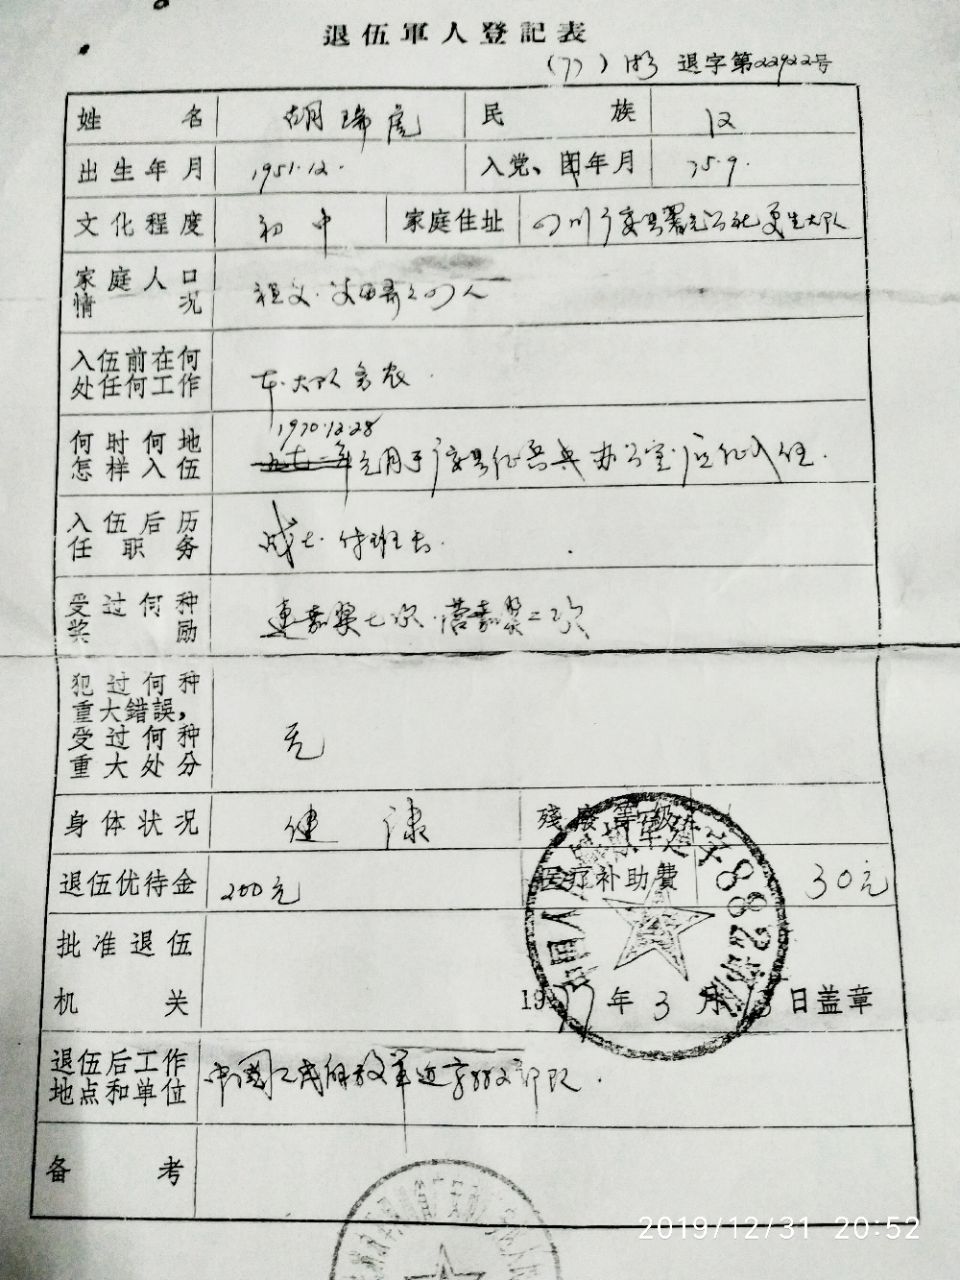 退伍軍人登記表
(77) 退字第22922号
姓名 胡瑞虎 民族 汉
出生年月 1951.12. 入党、团年月 75.9.
文化程度 初中 家庭住址 四川广安县署光公社更生大队
家庭人口
情况 祖父.父母哥之四人
入伍前在何
处任何工作 本.大队务农.
1970.12.28
何时何地
怎样入伍 于广安县征兵办公室应征入伍.
入伍后历
任职务 战士.付班长.
受过何种
奖励 連嘉奖七次.营嘉奖二次
犯过何种
重大錯誤,
受过何种
重大处分 无
身体状况 健康 残废等级
退伍优待金 200元 医疗补助費 30元
批准退伍
机关 1977年3月 日盖章
退伍后工作
地点和单位 中国人民解放军 部队.
备考
2019/12/31 20:52